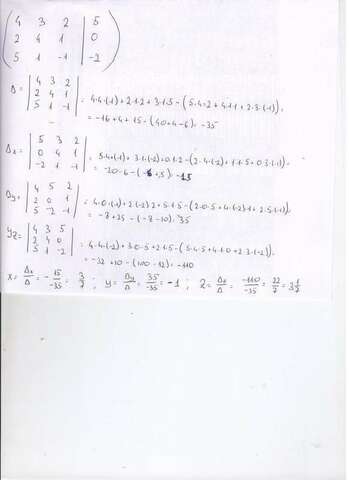 4 3 2 | 5
2 4 1 | 0
5 1 -1 | -2
Δ = | 4 3 2 |
| 2 4 1 | = 4·4·(-1)+2·1·2+3·1·5-(5·4·2+4·1·1+2·3·(-1))=
| 5 1 -1 | = -16+4+15-(40+4-6)= -35
Δx = | 5 3 2 |
| 0 4 1 | = 5·4·(-1)+3·1·(-2)+0·1·2-(2·4·(-2)+1·1·5+0·3·(-1))=
| -2 1 -1 | = -20-6-( +5)= -15
Δy = | 4 5 2 |
| 2 0 1 | = 4·0·(-1)+2·(-2)·2+5·1·5-(2·0·5+4·(-2)·1+2·5·(-1))=
| 5 -2 -1 | = -8+25-(-8-10)= 35
yz = | 4 3 5 |
| 2 4 0 | = 4·4·(-2)+3·0·5+2·1·5-(5·4·5+4·1·0+2·3·(-2))=
| 5 1 -2 | = -32+10-(100-12)= -110
x = Δx/Δ = -15/-35 = 3/7 ; y = Δy/Δ = 35/-35 = -1 ; z = Δz/Δ = -110/-35 = 22/7 = 3 1/7